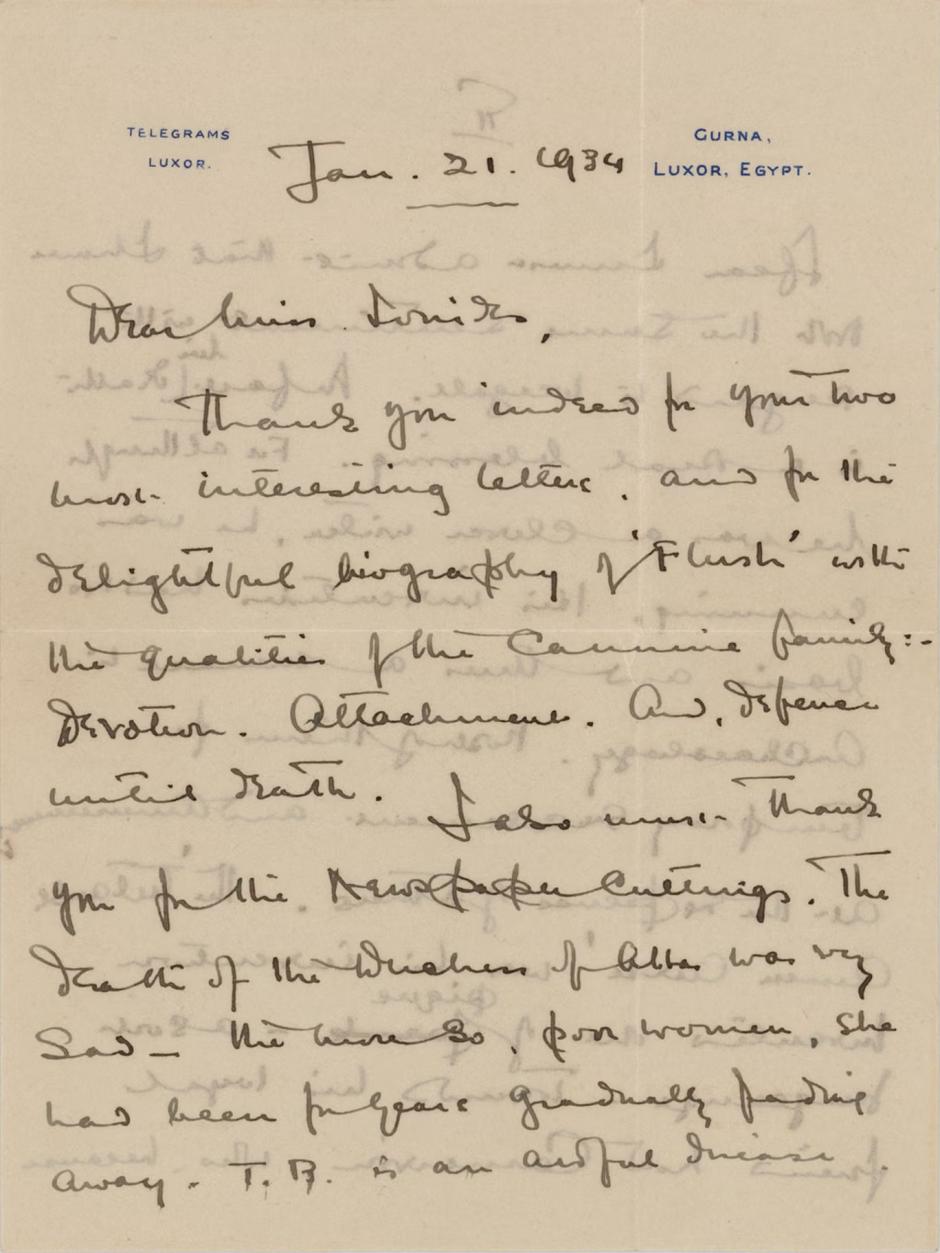 TELEGRAMS
LUXOR.
GURNA,
LUXOR, EGYPT.
Jan. 21. 1934
Dear Miss Ionides,
Thank you indeed for your two
most interesting letters, and for the
delightful biography of 'Flush' with
the qualities of the Cannine family:-
Devotion. Attachment. And, defence
until death. I also must thank
you for the Newspaper Cuttings. The
death of the Duchess of Alba was very
Sad — the more so, poor women, she
had been for years gradually fading
away. T.B. is an awful disease.